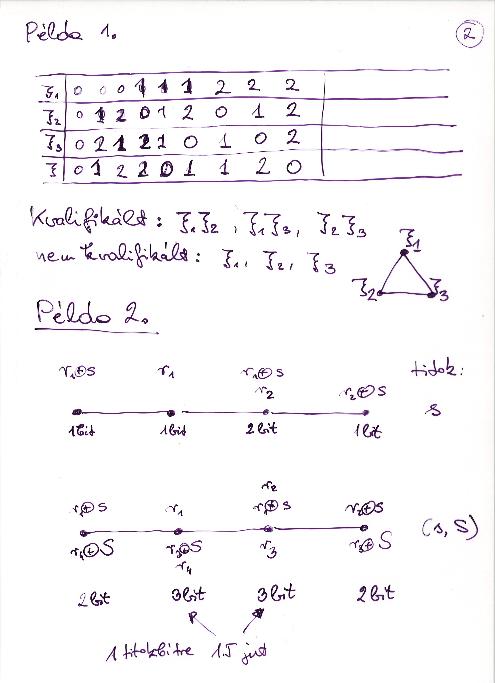 Példa 1. 2
ξ₁ 0 0 0 1 1 1 2 2 2
ξ₂ 0 1 2 0 1 2 0 1 2
ξ₃ 0 2 1 2 1 0 1 0 2
ξ 0 1 2 2 0 1 1 2 0
Kvalifikált: ξ₁ξ₂, ξ₁ξ₃, ξ₂ξ₃
nem kvalifikált: ξ₁, ξ₂, ξ₃
ξ₁
ξ₂ ξ₃
Példa 2.
r₁⊕s r₁ r₁⊕s titok:
r₂ r₂⊕s s
1bit 1bit 2bit 1bit
r₂
r₁⊕s r₁ r₁⊕s r₂⊕s (s, S)
r₃
r₄
2bit 3bit 3bit 2bit
1 titokbitre 1.5 jut